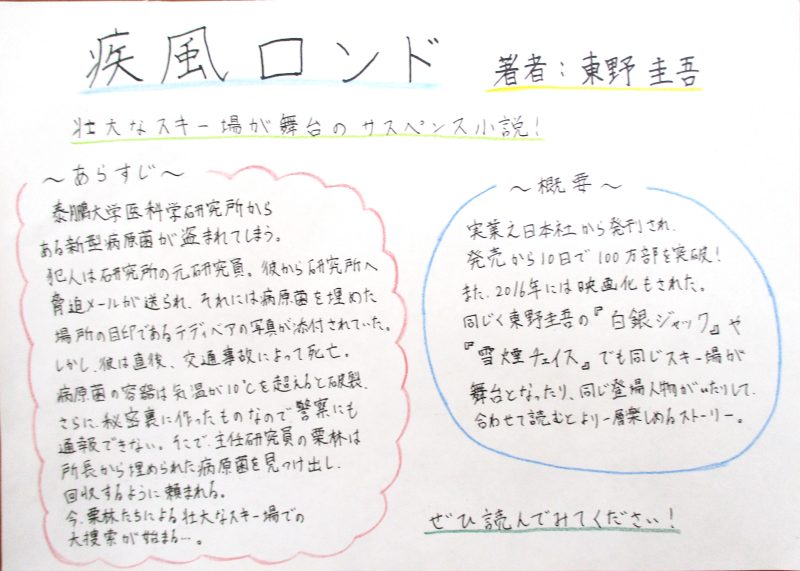 疾風ロンド
著者:東野圭吾
壮大なスキー場が舞台のサスペンス小説!
～あらすじ～
泰鵬大学医科学研究所から
ある新型病原菌が盗まれてしまう。
犯人は研究所の元研究員。彼から研究所へ
脅迫メールが送られ、それには病原菌を埋めた
場所の目印であるテディベアの写真が添付されていた。
しかし、彼は直後、交通事故によって死亡。
病原菌の容器は気温が10℃を超えると破裂、
さらに、秘密裏に作ったものなので警察にも
通報できない。そこで、主任研究員の栗林は
所長から埋められた病原菌を見つけ出し、
回収するように頼まれる。
今、栗林たちによる壮大なスキー場での
大捜索が始まる…。
～概要～
実業之日本社から発刊され、
発売から10日で100万部を突破!
また、2016年には映画化もされた。
同じく東野圭吾の『白銀ジャック』や
『雪煙チェイス』でも同じスキー場が
舞台となったり、同じ登場人物がいたりして、
合わせて読むとより一層楽しめるストーリー。
ぜひ読んでみてください!